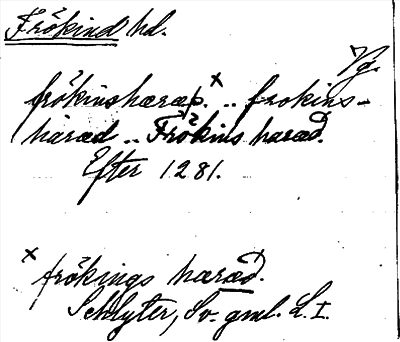 Frökind hd.
Vg.
frökinshæræþ.ˣ .. frokins-
hàræd .. Frökins hæræd.
Efter 1281.
ˣ frökings hæræd.
Schlyter, Sv. gml. L. I.